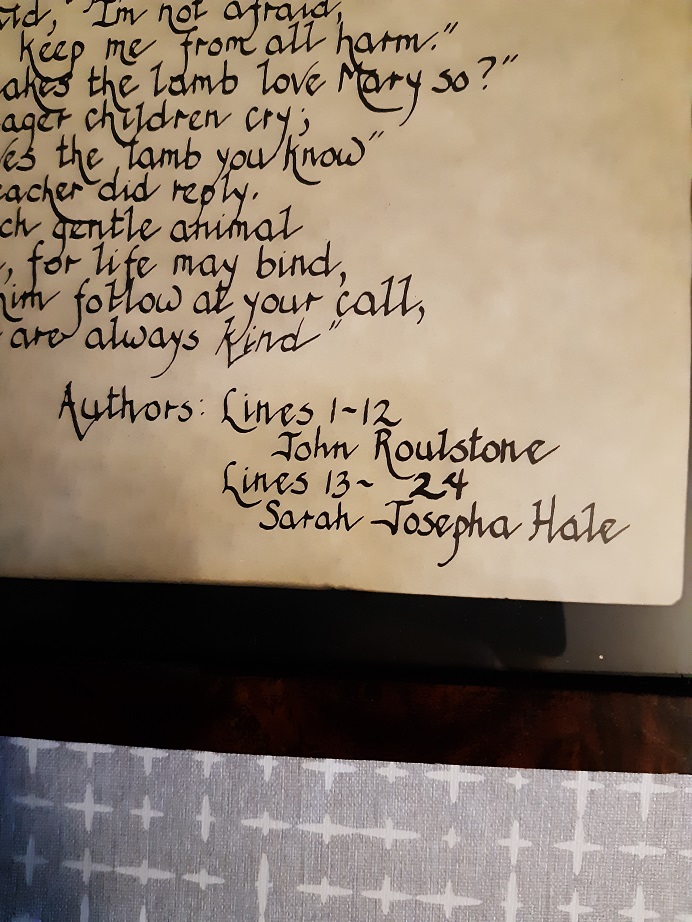 "I'm not afraid,
keep me from all harm."
the lamb love Mary so?"
children cry;
the lamb you know"
did reply.
gentle animal
, for life may bind,
follow at your call,
are always kind"
Authors: Lines 1-12
John Roulstone
Lines 13- 24
Sarah Josepha Hale